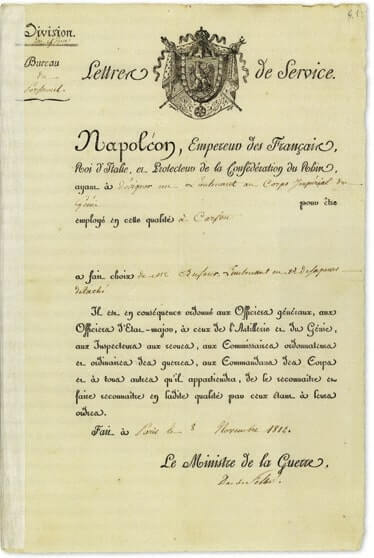 Division
Bureau
du
Personnel
Lettres de Service.
Napoléon, Empereur des Français,
Roi d'Italie, et Protecteur de la Confédération du Rhin,
ayant à désigner un Lieutenant au Corps Impérial du
génie pour être
employé en cette qualité à Corfou
a fait choix de M. Dufour, Lieutenant en
détaché
Il est en conséquence ordonné aux Officiers généraux, aux
Officiers d'État-major, à ceux de l'Artillerie et du Génie,
aux Inspecteurs aux revues, aux Commissaires ordonnateurs
et ordinaires des guerres, aux Commandans des Corps
et à tous autres qu'il appartiendra, de le reconnaître et
faire reconnaître en ladite qualité par ceux étant à leurs
ordres.
Fait à Paris le 3 Novembre 1812.
Le Ministre de la Guerre,